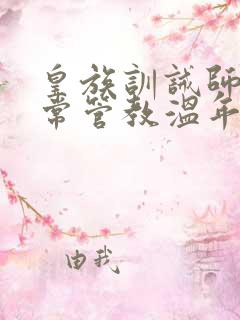 皇族訓誡師
常管教溫年
由我